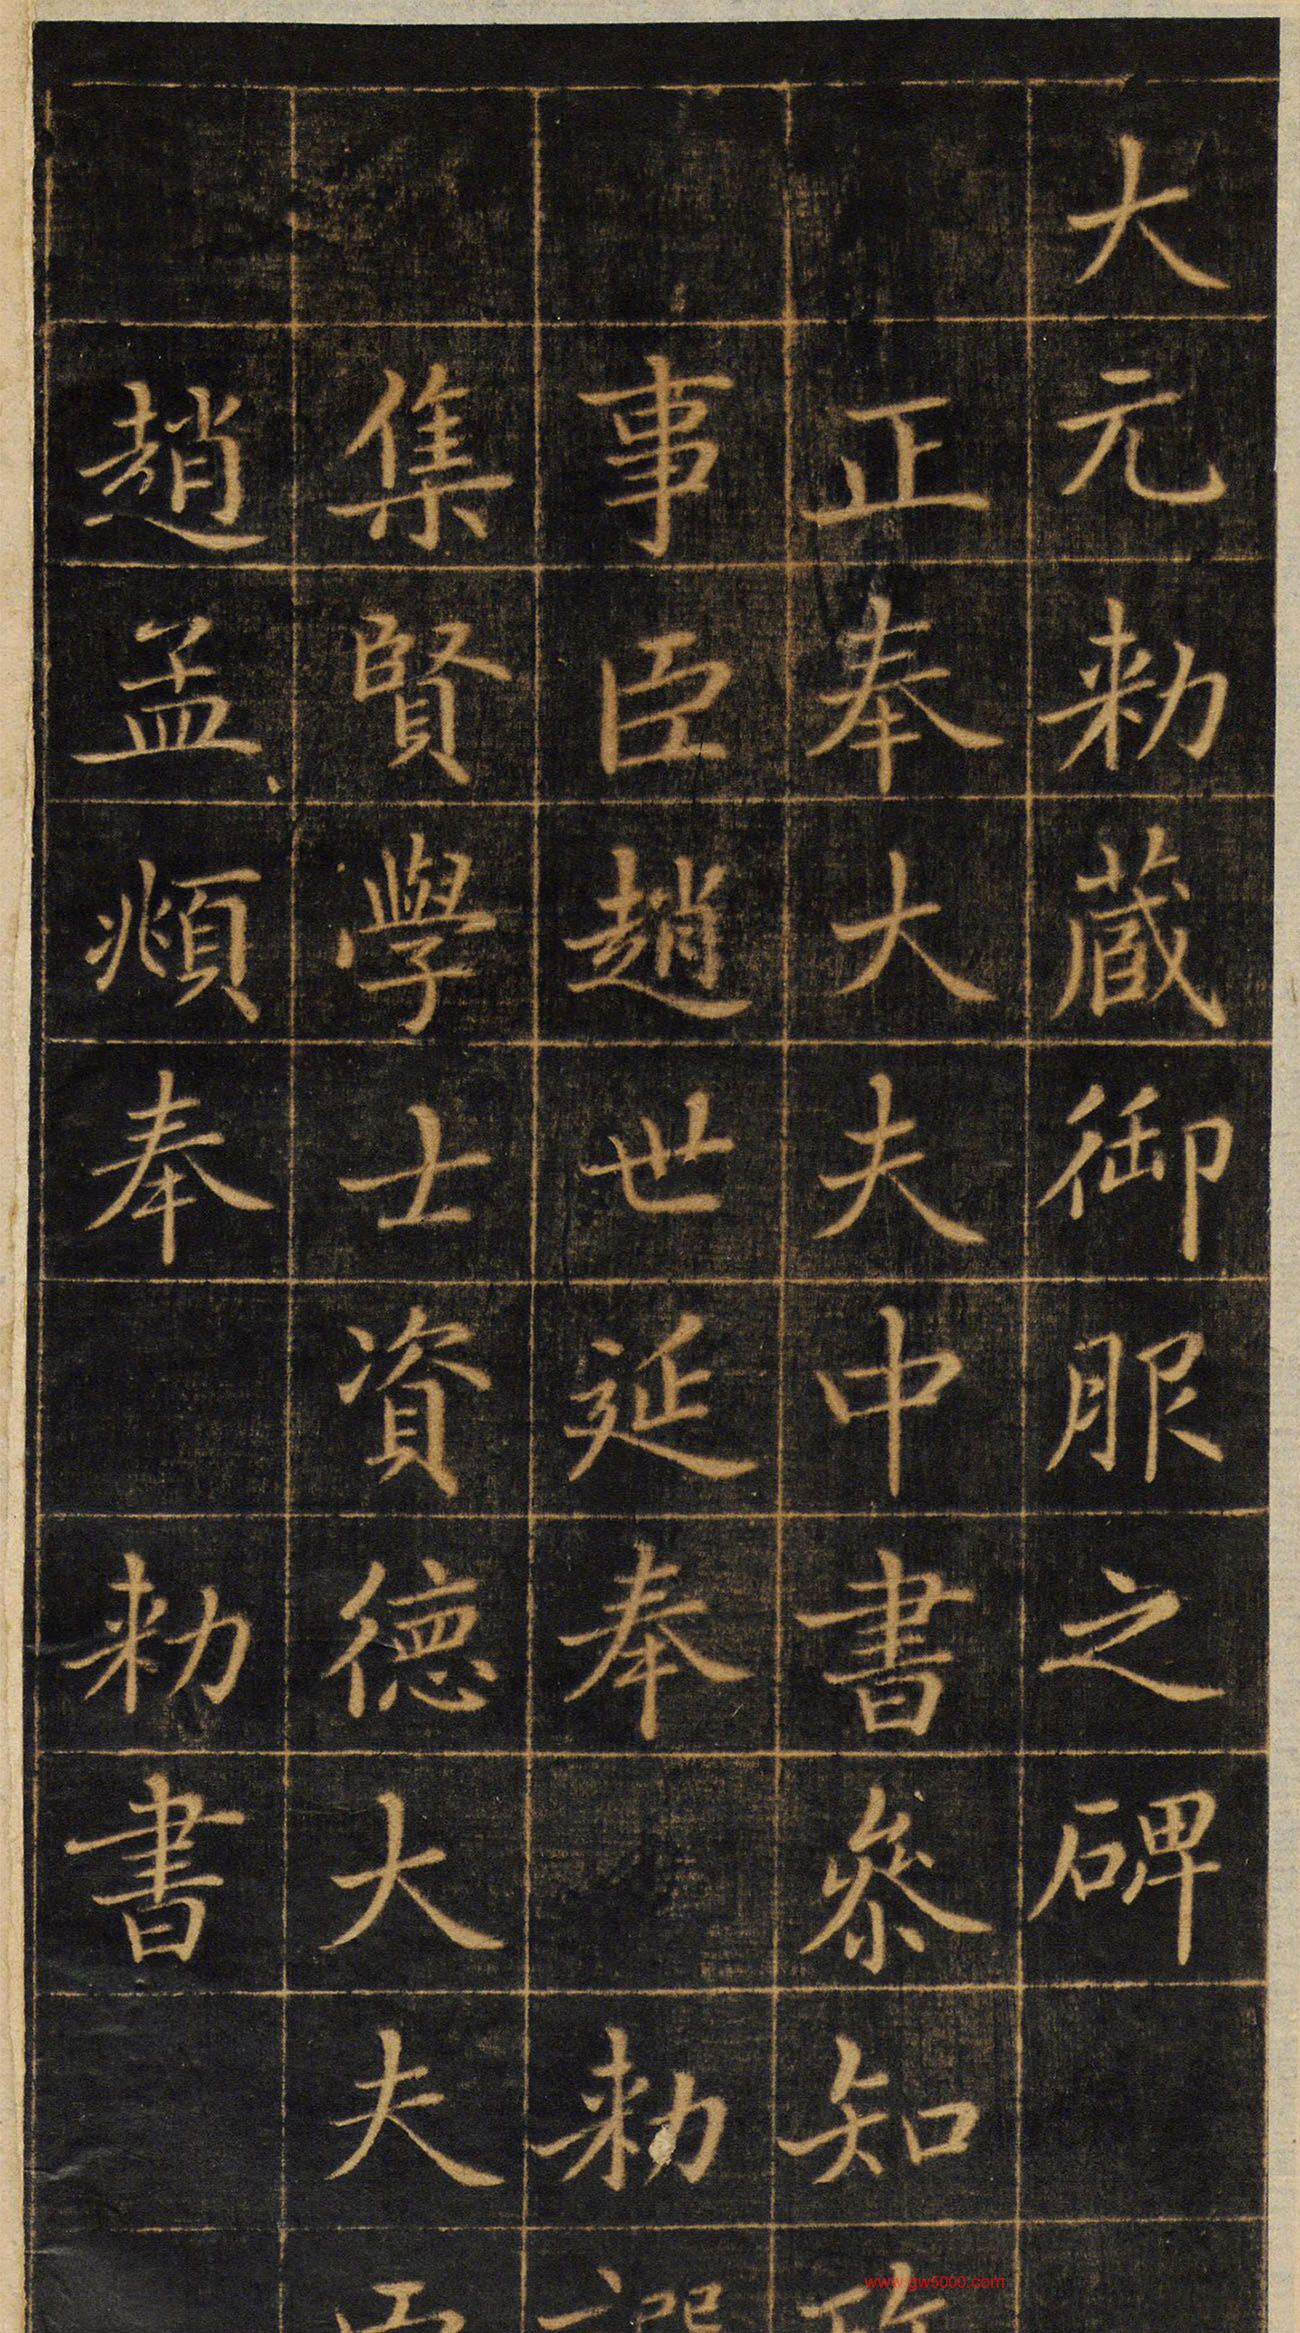 大元勑藏御服之碑
正奉大夫中書參知
事臣趙世延奉 勑
集賢學士資德大夫
趙孟頫奉 勑書
www.gw5000.com